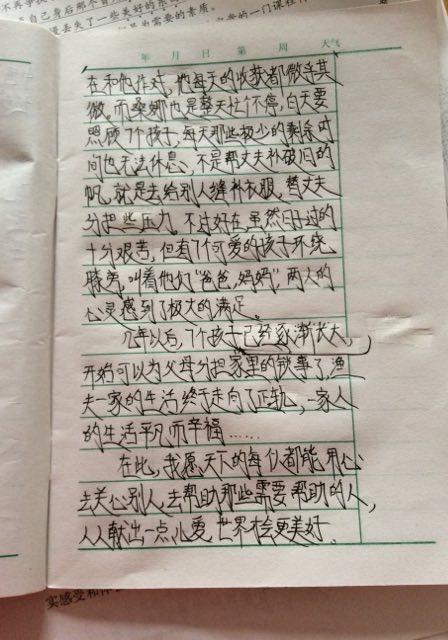 自己身后那个
丢失了一些美好的东西
需要的素质。
年 月 日 第 周 天气
在和他作对,他每天的收获都微乎其
微。而桑娜也是整天忙个不停,白天要
照顾7个孩子,每天那些极少的剩余时
间也无法休息,不是帮丈夫补破旧的
帆,就是去给别人缝补衣服,替丈夫
分担些压力。不过好在,虽然日子过的
十分艰苦,但有7个可爱的孩子环绕
膝旁,叫着他们“爸爸,妈妈”两人的
心灵感到了极大的满足。
几年以后,7个孩子已经逐渐长大,
开始可以为父母分担家里的锁事了,渔
夫一家的生活终于走向了正轨,一家人
的生活平凡而幸福……
在此,我愿天下的每位都能用心
去关心别人,去帮助那些需要帮助的人,
人人献出一点儿爱,世界才会更美好.
实感受和体